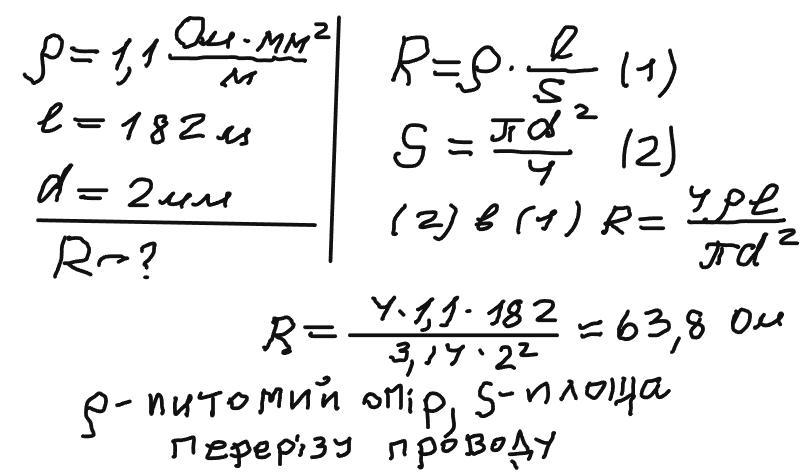 ρ = 1,1 Ом·мм²/м
l = 182 м
d = 2 мм
R - ?
R = ρ · l/S (1)
S = πd²/4 (2)
(2) в (1) R = 4ρl/πd²
R = 4·1,1·182/3,14·2² ≈ 63,8 Ом
ρ - питомий опір, S - площа
перерізу проводу